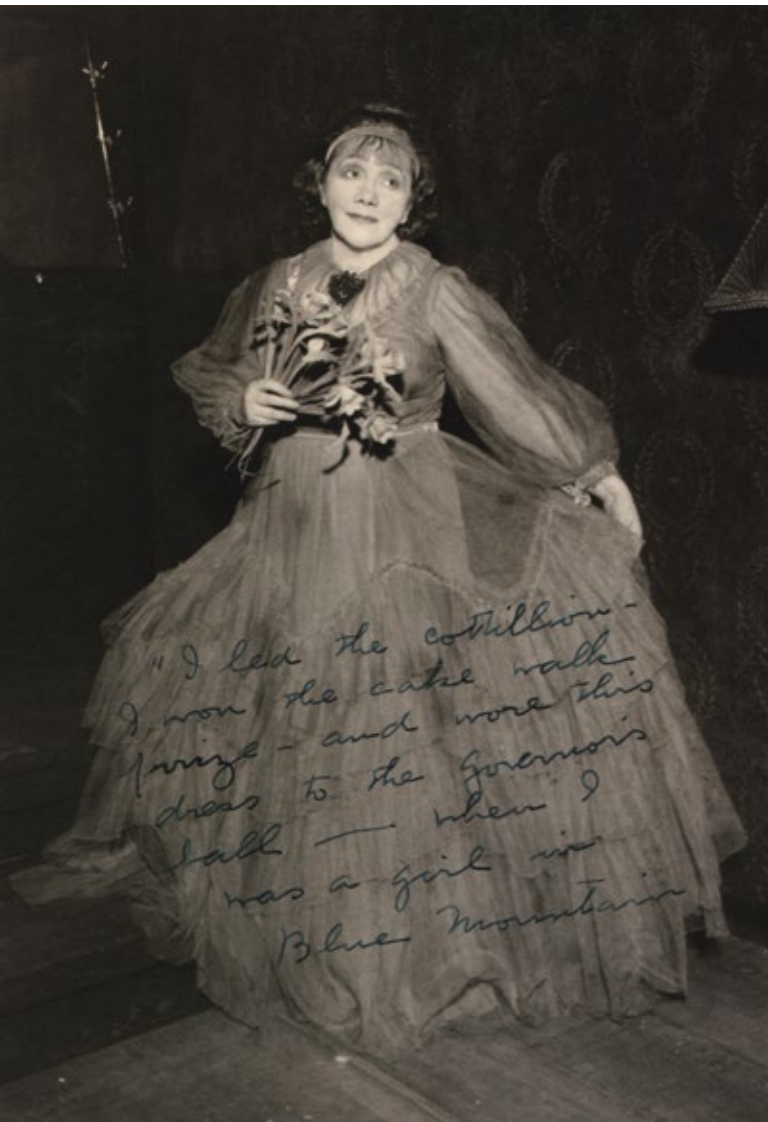 "I led the cottillion-
I won the cake walk
prize - and wore this
dress to the Governor's
ball — when I
was a girl in
Blue Mountain